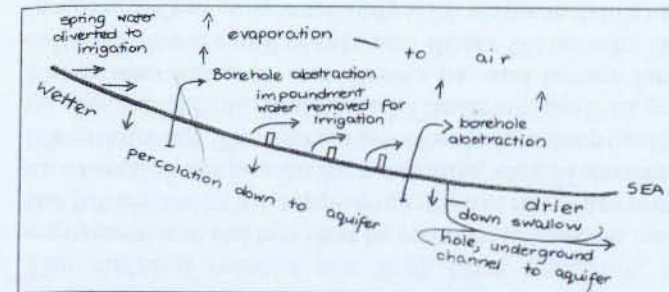 spring water
diverted to
irrigation
evaporation
to
air
Borehole abstraction
impoundment
water removed for
irrigation
borehole
abstraction
wetter
percolation down to aquifer
SEA
drier
down swallow
hole, underground
channel to aquifer